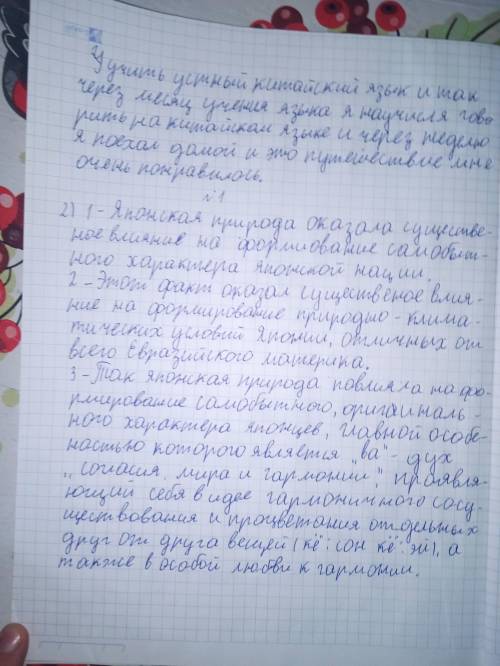 Учить устный китайский язык и так
через месяц учения языка я научился гово
рить на китайкам языке и через неделю
я поехал домой и это путешествие мне
очень понравилось.
№1
2) 1 - Японская природа оказала существе-
ное влияние на формлование самобыт-
ного характера японской нации.
2 - Этот факт оказал существеное влия-
ние на формирование природно-клима-
тических условий Японии, отличных от
всего Евразийского материка.
3 - Так японская природа повлияла на фо-
рмирование самобытного, оригиналь-
ного характера японцев, главной особе-
ностью которого является „ва" - дух
„согласия, мира и гармонии", проявля-
ющий себя в идее гармоничного сосу-
ществования и процветания отдельных
друг от друга вещей (кё: сон кё: эй), а
также в особой любви к гармонии.